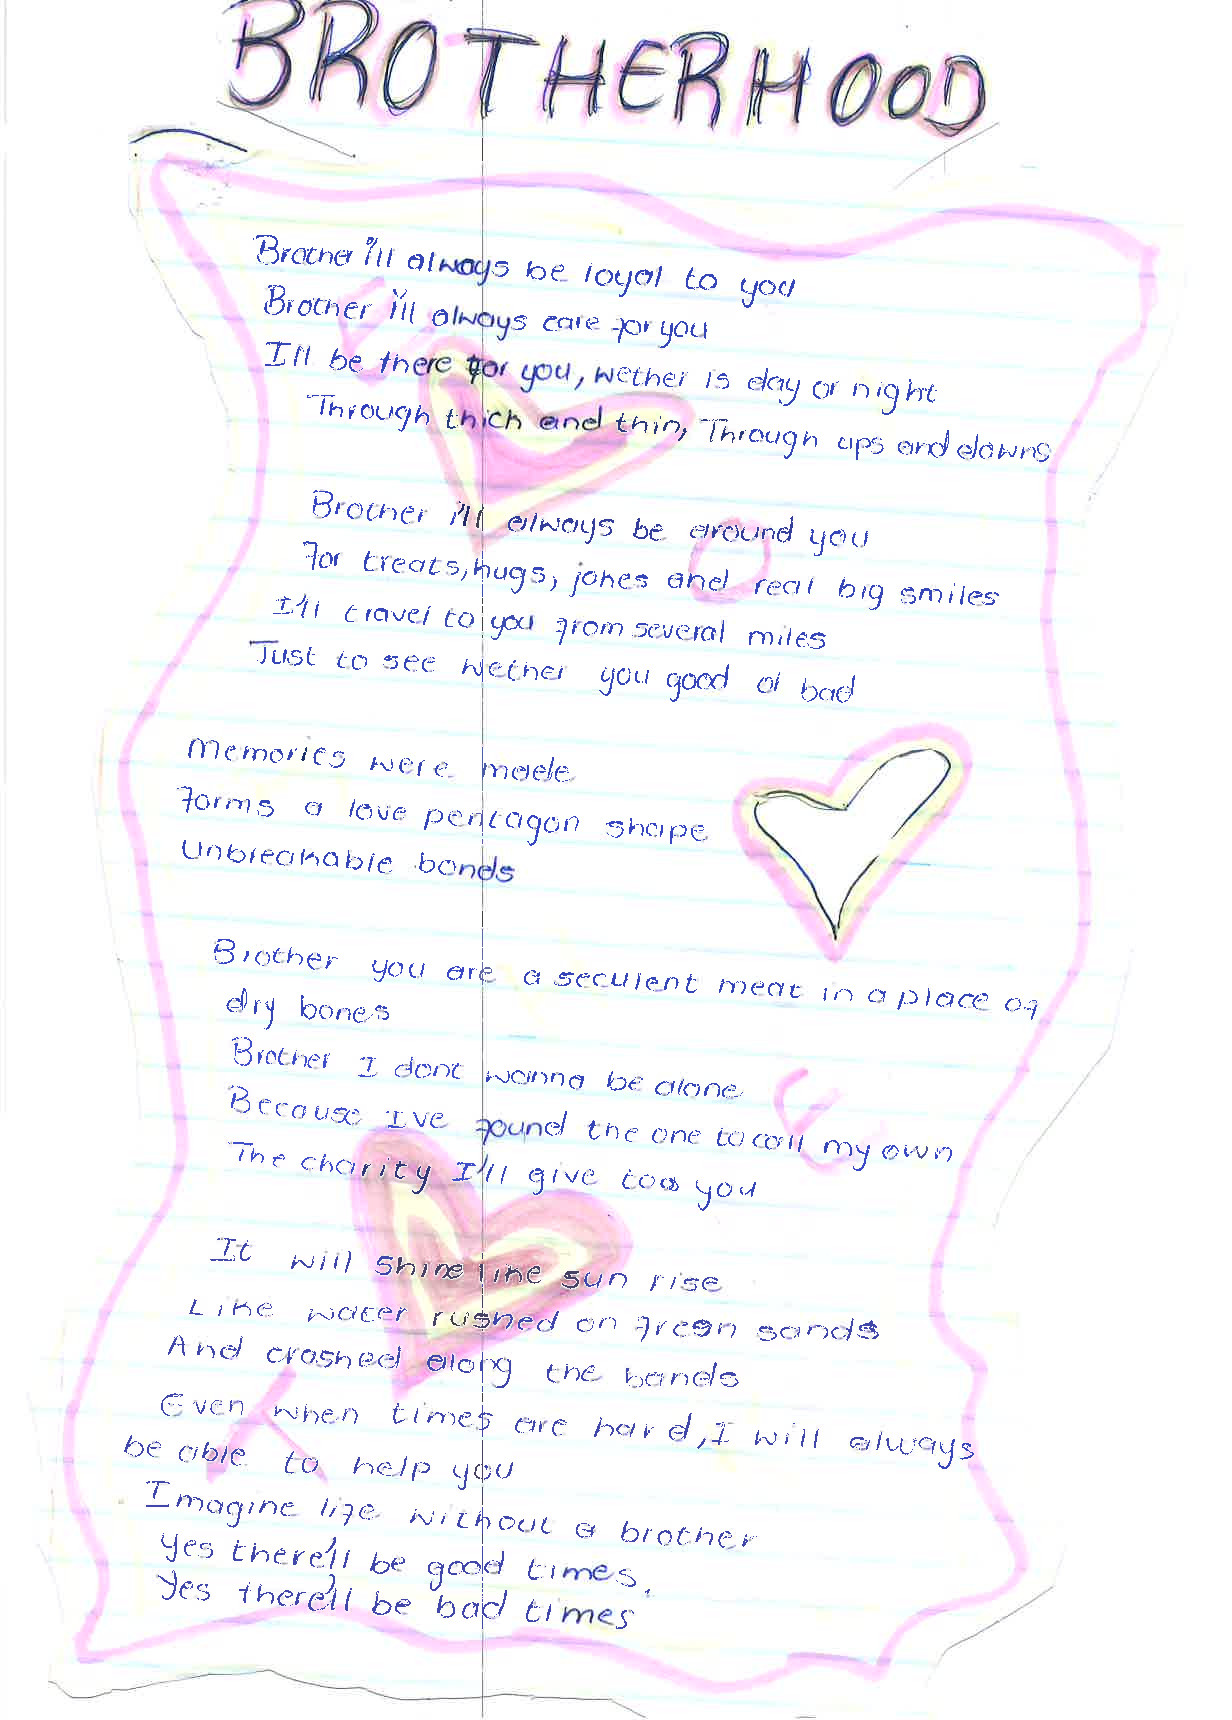 BROTHERHOOD
Brother i'll always be loyal to you
Brother i'll always care for you
I'll be there for you, wether is day or night
Through thick and thin, Through ups and downs
Brother i'll always be around you
For treats, hugs, jokes and real big smiles
I'll travel to you from several miles
Just to see wether you good or bad
Memories were made
Forms a love pentagon shape
Unbreakable bonds
Brother you are a seculent meat in a place of
dry bones
Brother I dont wanna be alone
Because I've found the one to call my own
The charity I'll give too you
It will shine like sun rise
Like water rushed on green sands
And crashed along the bands
Even when times are hard, I will always
be able to help you
Imagine life without a brother
Yes there'll be good times,
Yes there'll be bad times